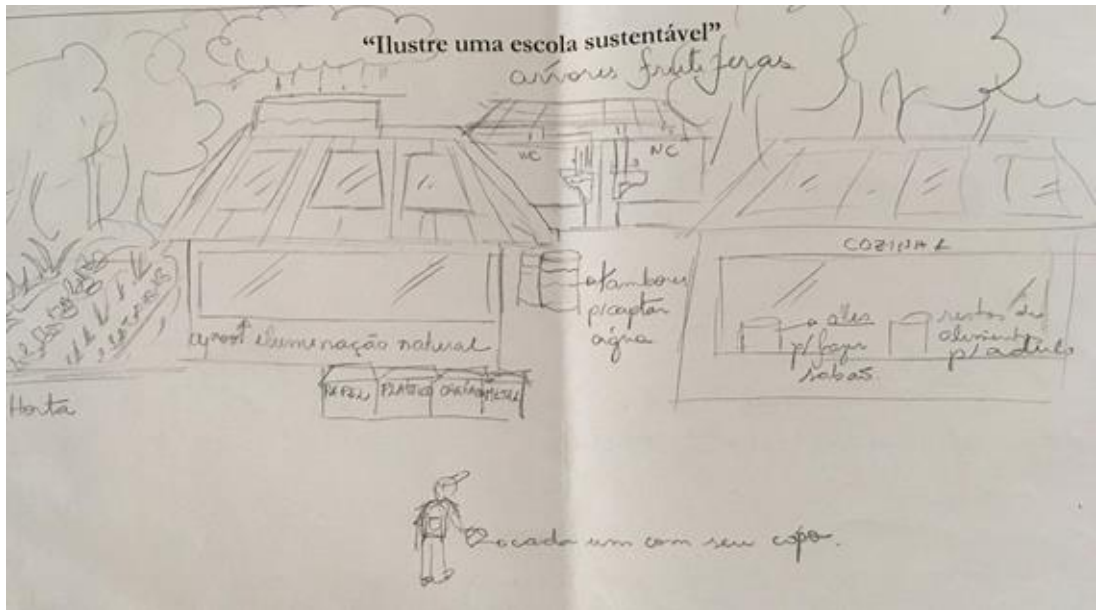 “Ilustre uma escola sustentável”
arvores frutiferas
WC
WC
COZINHA
tambores
p/captar
água
oleo
p/fazer
sabão
restos de
alimento
p/adubo
iluminação natural
PAPEL PLASTICO METAL
Horta
cada um com seu copo.